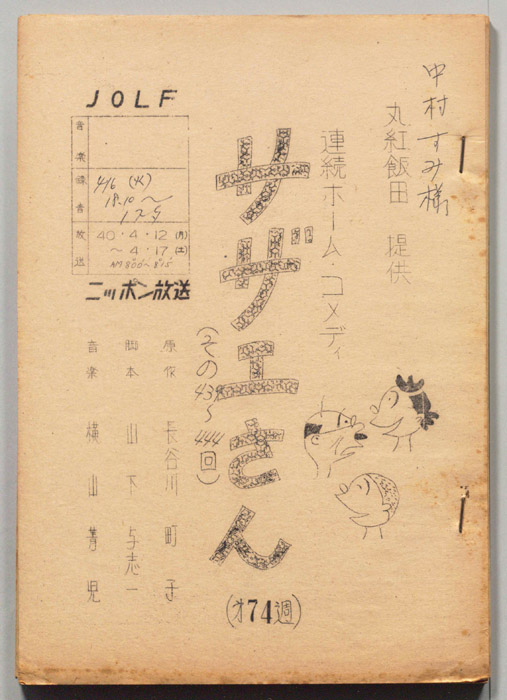 中村すみ様
丸紅飯田　提供
連続ホーム・コメディ
サザエさん
(第74週)
JOLF
音楽
録音
4/6 (火)
18.10～
放送
40・4・12(月)
～4・17(土)
AM8:00～8:15
ニッポン放送
原作　長谷川町子
脚本　山下与志一
音楽　横山菁児